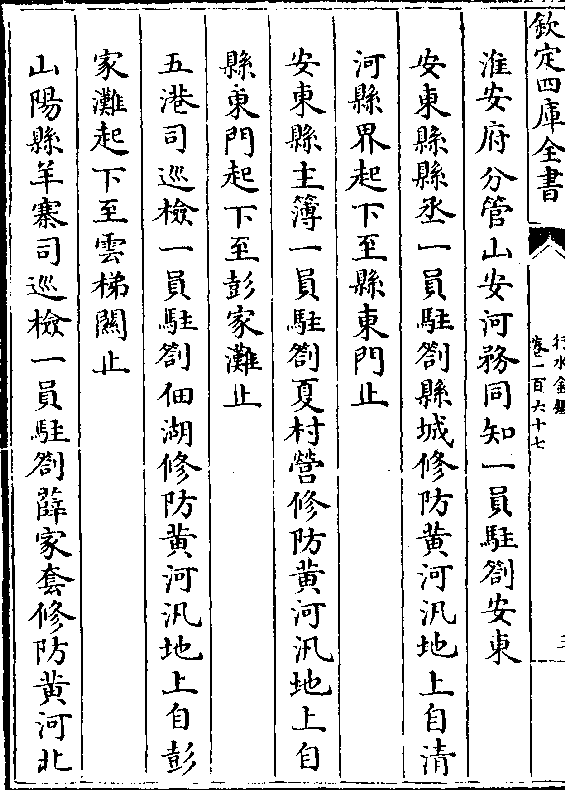 欽定四庫全書
行水金鑑
卷一百六十七
淮安府分管山安河務同知一員駐劄安東
安東縣縣丞一員駐劄縣城修防黄河汛地上自清
河縣界起下至縣東門止
安東縣主簿一員駐劄夏村營修防黄河汛地上自
縣東門起下至彭家灘止
五港司巡檢一員駐劄佃湖修防黄河汛地上自彭
家灘起下至雲梯關止
山陽縣羊寨司巡檢一員駐劄薛家套修防黄河北